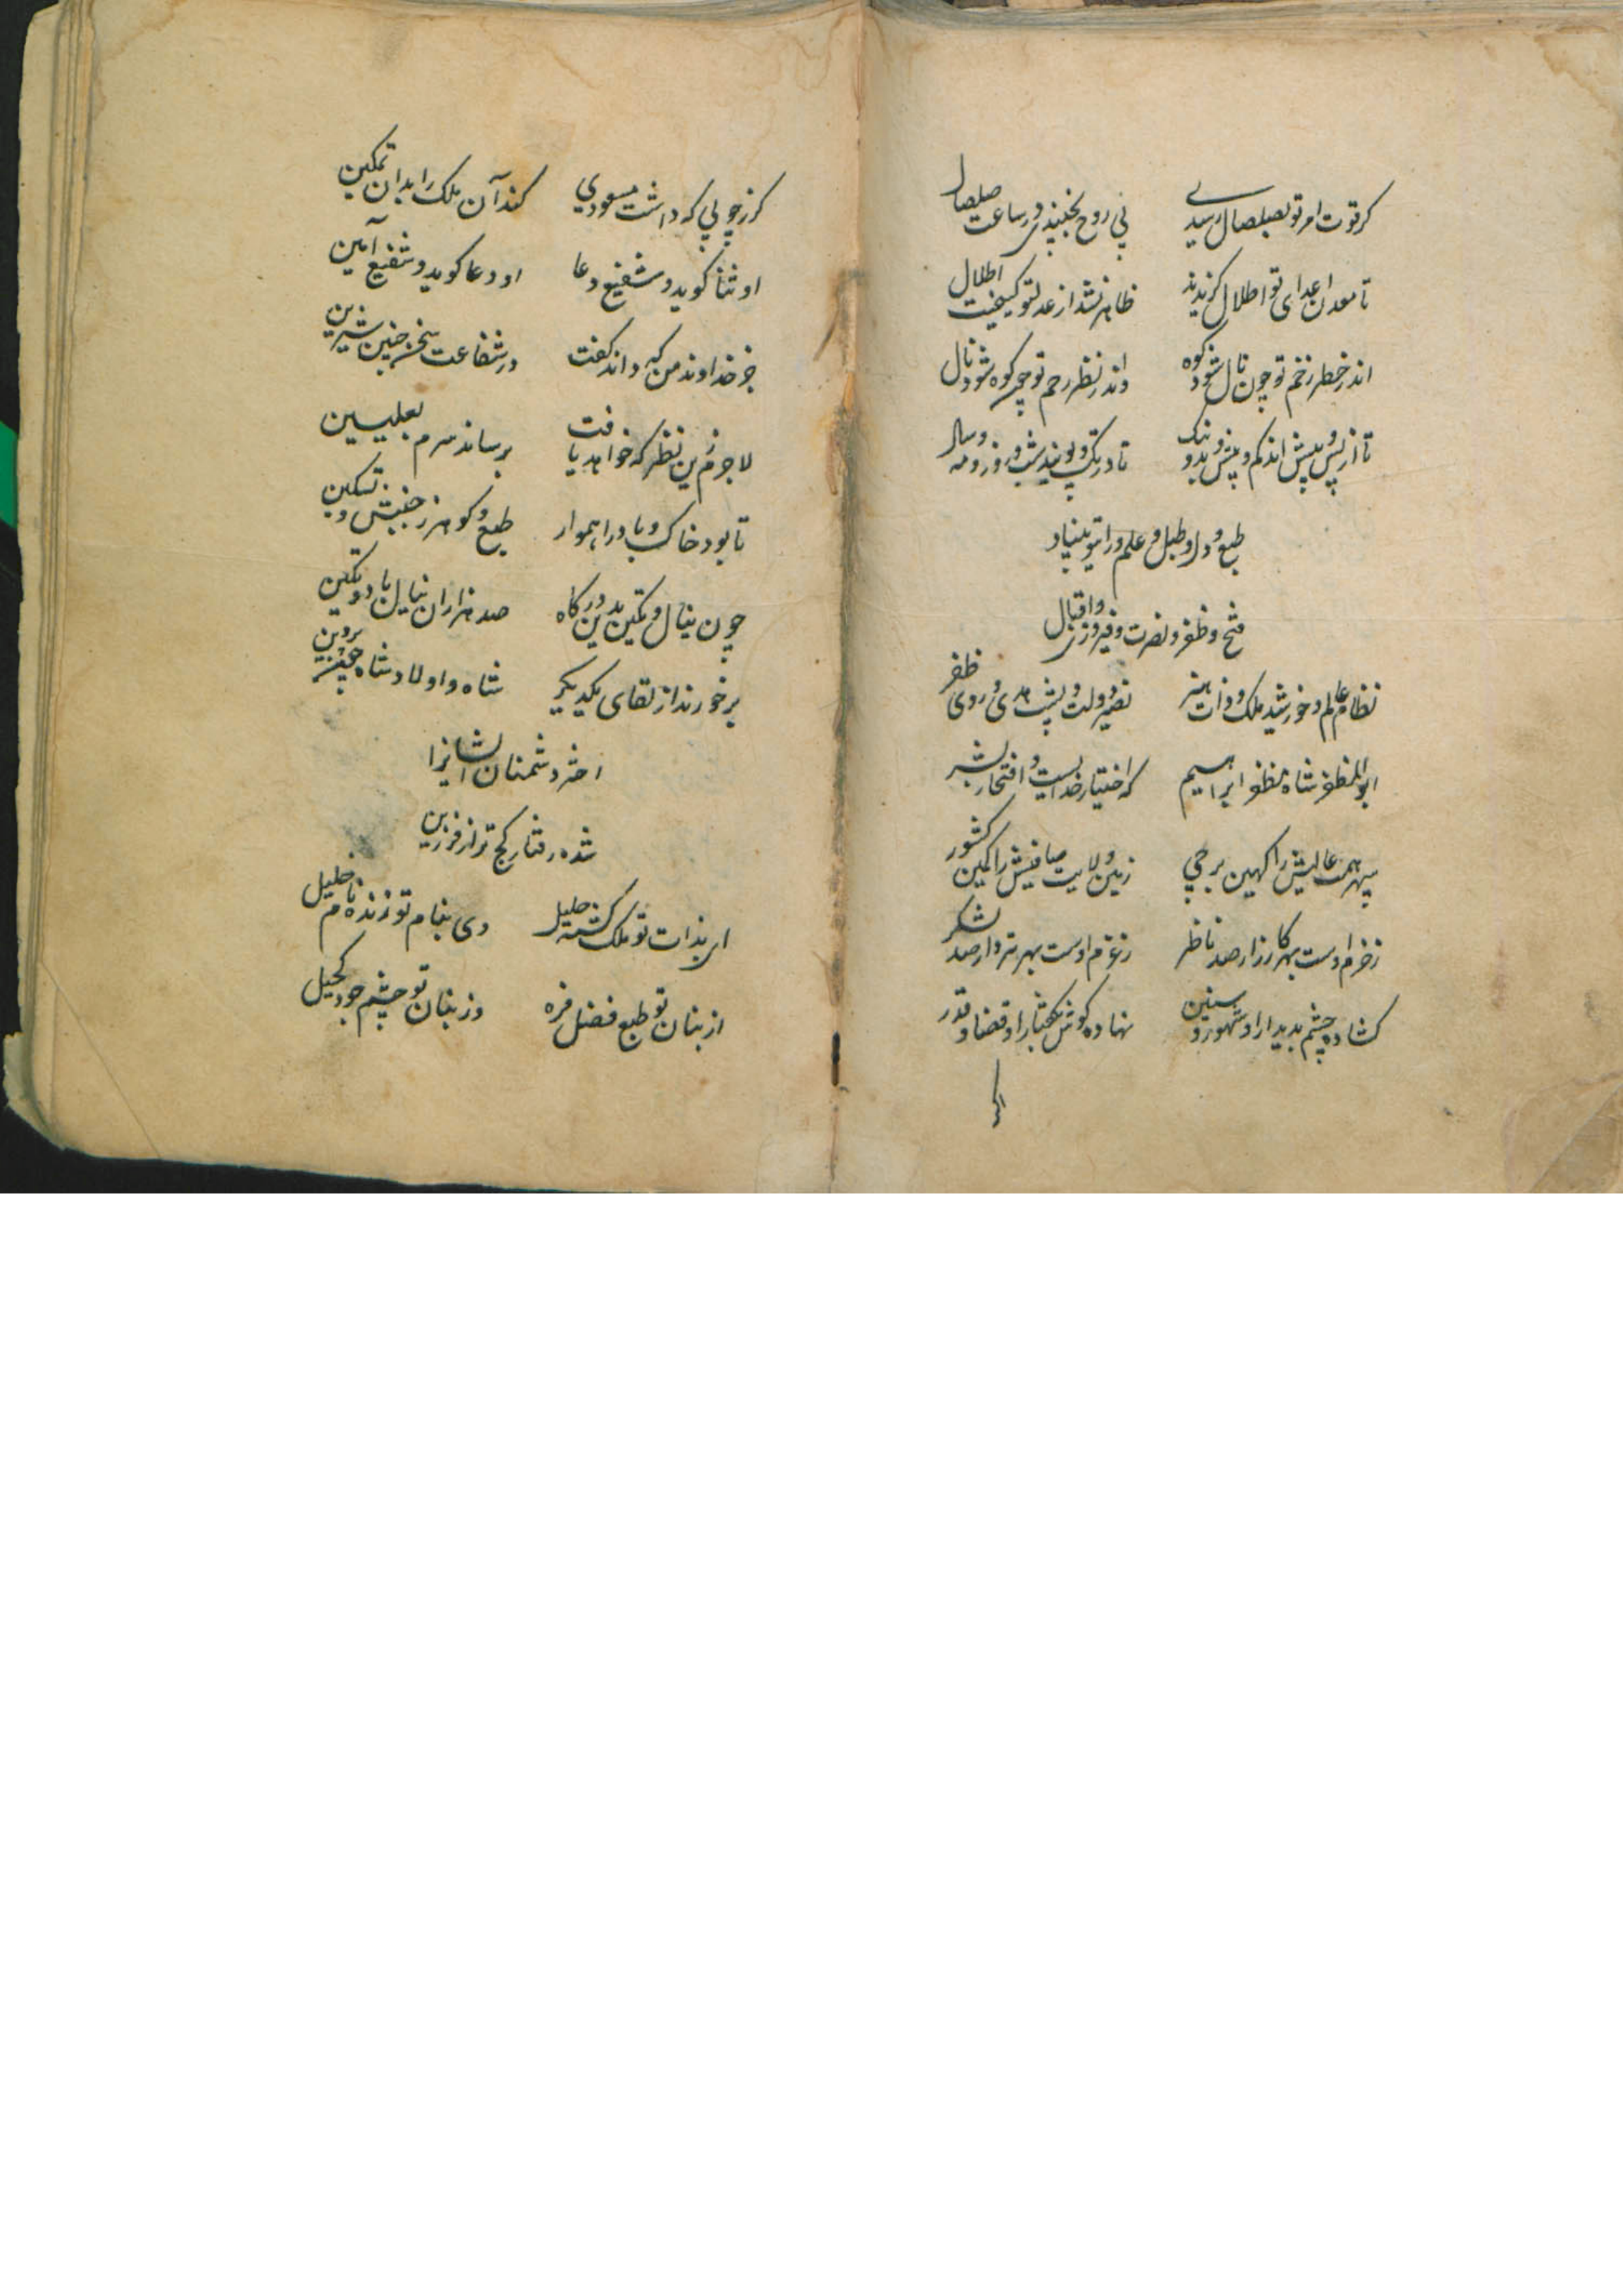 کر قوت امر تو بصلصال رسیدے بی روح بجنبیدی در ساعت صلصال
تا معدن اعدای تو اطلال گزیدند ظاهر نشد از عدل تو کیفیت اطلال
اندر خطر زخم تو چون نال شود کوه واندر نظر رحم تو چون کوه شود نال
تا از پس و پیش اند کم و بیش و بد و نیک تا در تک و پویند شب و روز و مه و سال
طبع و دل و طبل و علم و رایت و بنیاد
فتح و ظفر و نصرت و فیروزی و اقبال
نظام عالم و خورشید ملک و ذات هنر نصیر دولت و پشت هدی و روی ظفر
ابوالمظفر شاه مظفر ابراهیم که اختیار خدایست و افتخار بشر
سپهر همت عالیش را کهین برجی زمین ولایت صافیش را کمین کشور
ز حزم اوست بهر کارزار صد ناظر ز عزم اوست بهر مرز دار صد لشکر
گشاده چشم بدیدار او شهور و سنین نهاده گوش بگفتار او قضا و قدر
کرز چوبی که داشت مسعودی کند آن ملک را بدان تمکین
او ثنا کوید و شفیع دعا او دعا کوید و شفیع آمین
جز خداوند من که داند کفت در شفاعت سخن چنین شیرین
لاجرم زین نظر که خواهد یافت برساند سرم بعلیین
تا بود خاک و باد را هموار طبع و کوهر ز جنبش و تسکین
چون ینال و تکین بدین درکاه صد هزاران ینال باد و تکین
برخورند از لقای یکدیکر شاه و اولاد شاه چون پروین
اختر دشمنان ایشانرا
شده رفتار کج تر از فرزین
ای بذات تو ملک کشته جلیل وی بنام تو زنده نام خلیل
از بنان تو طبع فضل فره وز بنان تو چشم جود کحیل